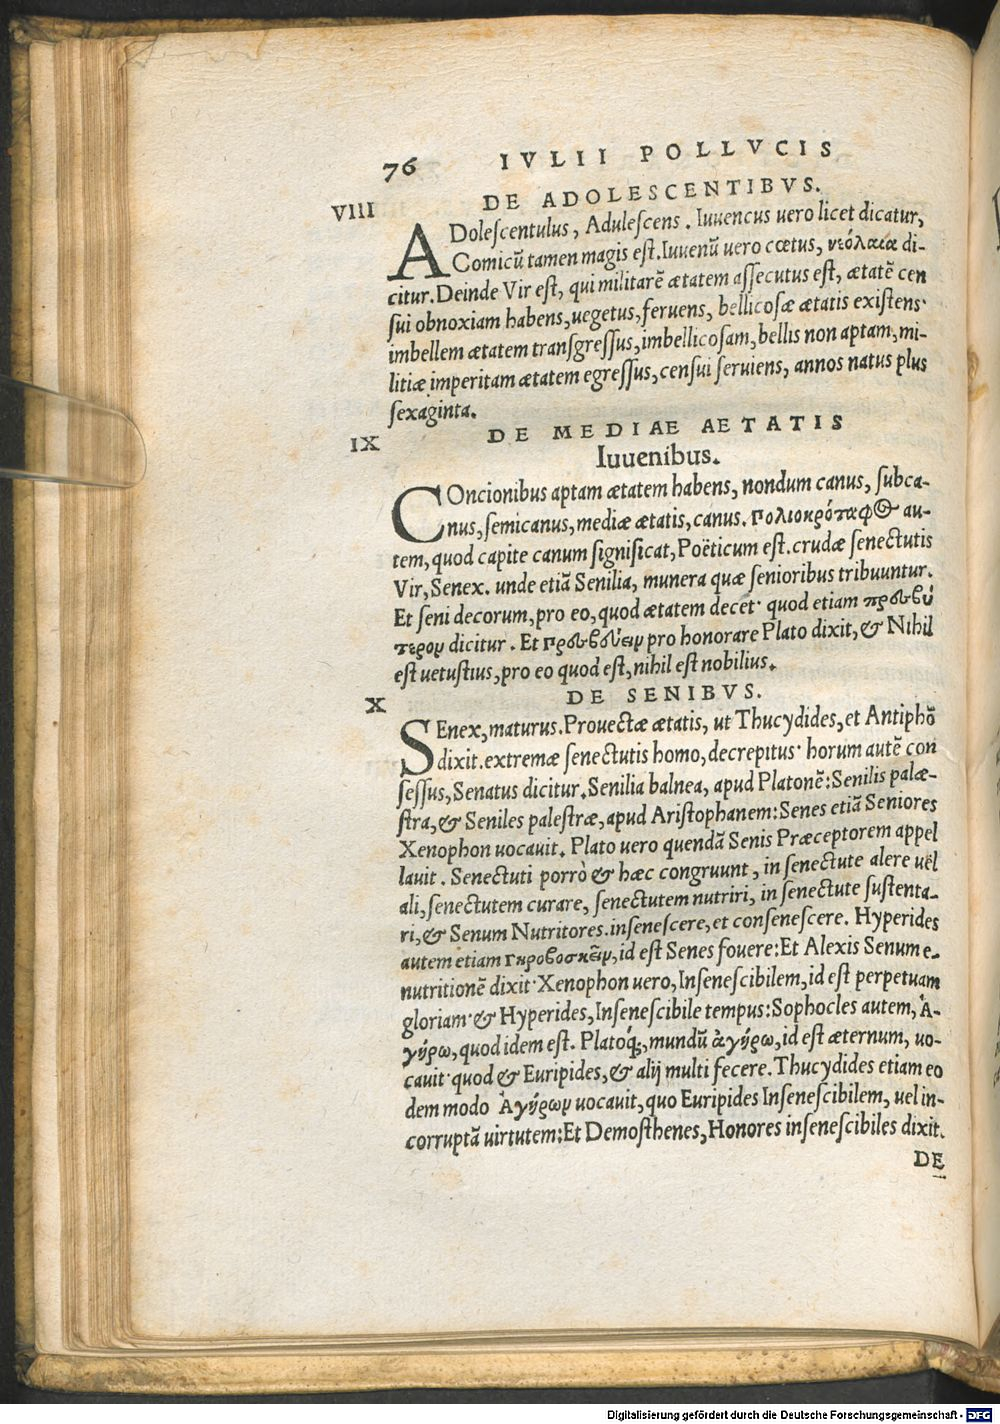 76 IVLII POLLVCIS
VIII DE ADOLESCENTIBVS.
ADoleſcentulus, Aduleſcens. Iuuencus uero licet dicatur,
Comicū tamen magis eſt. Iuuenū uero cœtus, νεόλαια di-
citur. Deinde Vir eſt, qui militarē ætatem aſſecutus eſt, ætatē cen
ſui obnoxiam habens, uegetus, feruens, bellicoſæ ætatis exiſtens·
imbellem ætatem tranſgreſſus, imbellicoſam, bellis non aptam, mi-
litiæ imperitam ætatem egreſſus, cenſui ſeruiens, annos natus plus
ſexaginta.
IX DE MEDIAE AETATIS
Iuuenibus.
COncionibus aptam ætatem habens, nondum canus, ſubca-
nus, ſemicanus, mediæ ætatis, canus. πολιοκρόταφος au-
tem, quod capite canum ſignificat, Poëticum eſt. crudæ ſenectutis
Vir, Senex. unde etiā Senilia, munera quæ ſenioribus tribuuntur.
Et ſeni decorum, pro eo, quod ætatem decet· quod etiam πρεσβύ
τερον dicitur. Et πρεσβεύειν pro honorare Plato dixit, & Nihil
eſt uetuſtius, pro eo quod eſt, nihil eſt nobilius.
X DE SENIBVS.
SEnex, maturus. Prouectæ ætatis, ut Thucydides, et Antiphō
dixit. extremæ ſenectutis homo, decrepitus· horum autē con
ſeſſus, Senatus dicitur. Senilia balnea, apud Platonē: Senilis palæ-
ſtra, & Seniles paleſtræ, apud Ariſtophanem: Senes etiā Seniores
Xenophon uocauit. Plato uero quendā Senis Præceptorem appel
lauit. Senectuti porrò & hæc congruunt, in ſenectute alere uel
ali, ſenectutem curare, ſenectutem nutriri, in ſenectute ſuſtenta-
ri, & Senum Nutritores. inſeneſcere, et conſeneſcere. Hyperides
autem etiam γηροβοσκεῖν, id eſt Senes fouere: Et Alexis Senum e-
nutritionē dixit· Xenophon uero, Inſeneſcibilem, id eſt perpetuam
gloriam· & Hyperides, Inſeneſcibile tempus: Sophocles autem, Ἀ-
γήρω, quod idem eſt. Platoq́;, mundū ἀγήρω, id eſt æternum, uo-
cauit· quod & Euripides, & alij multi fecere. Thucydides etiam eo
dem modo Ἀγήρων uocauit, quo Euripides Inſeneſcibilem, uel in-
corruptā uirtutem: Et Demoſthenes, Honores inſeneſcibiles dixit.
DE
Digitalisierung gefördert durch die Deutsche Forschungsgemeinschaft - DFG